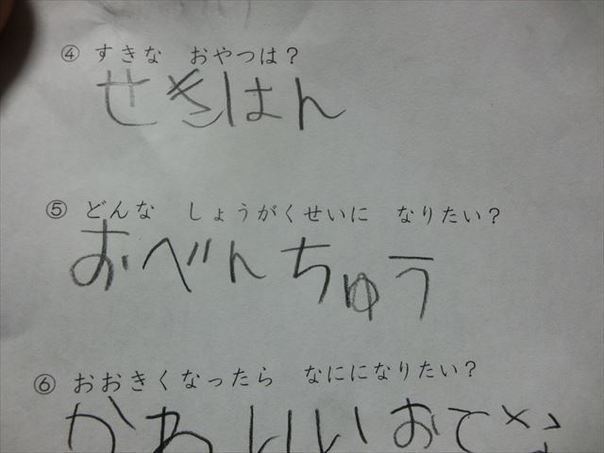 ④ すきな おやつは？
せきはん
⑤ どんな しょうがくせいに なりたい？
おべんちゅう
⑥ おおきくなったら なにになりたい？
かわいいおて